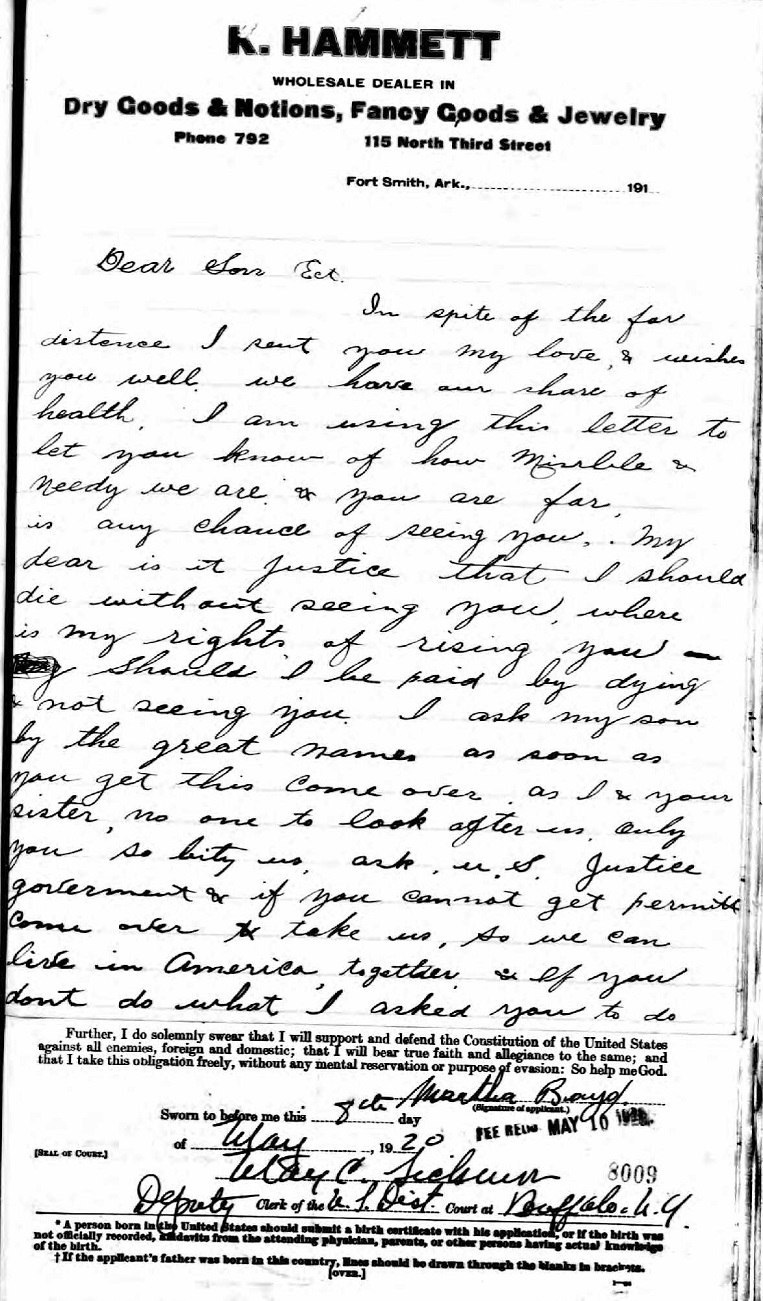 K. HAMMETT
WHOLESALE DEALER IN
Dry Goods & Notions, Fancy Goods & Jewelry
Phone 792 115 North Third Street
Fort Smith, Ark., 191
Dear Son Ect.
In spite of the far
distence I sent you my love, & wishes
you well. we have our share of
health. I am using this letter to
let you know of how Misrble &
needy we are. & you are far,
is any chance of seeing you. . My
dear is it justice that I should
die without seeing you, where
is my rights of rising you —
Should I be paid by dying
& not seeing you. I ask my son
by the great names as soon as
you get this come over. as I & your
sister, no one to look after us. only
you so bity us, ask, u.S. Justice
goverment & if you cannot get permitt
come over & take us, so we can
live in America, together. & If you
dont do what I asked you to do
Further, I do solemnly swear that I will support and defend the Constitution of the United States
against all enemies, foreign and domestic; that I will bear true faith and allegiance to the same; and
that I take this obligation freely, without any mental reservation or purpose of evasion: So help me God.
Martha Boyd.
(Signature of applicant.)
Sworn to before me this 8th day
FEE REC'D MAY 10 1920.
of May, 1920
[SEAL OF COURT.]
C. 8009
Deputy Clerk of the U. S. Dist. Court at Buffalo. N.Y.
* A person born in the United States should submit a birth certificate with his application, or if the birth was
not officially recorded, affidavits from the attending physician, parents, or other persons having actual knowledge
of the birth.
† If the applicant's father was born in this country, lines should be drawn through the blanks in brackets.
[OVER.]